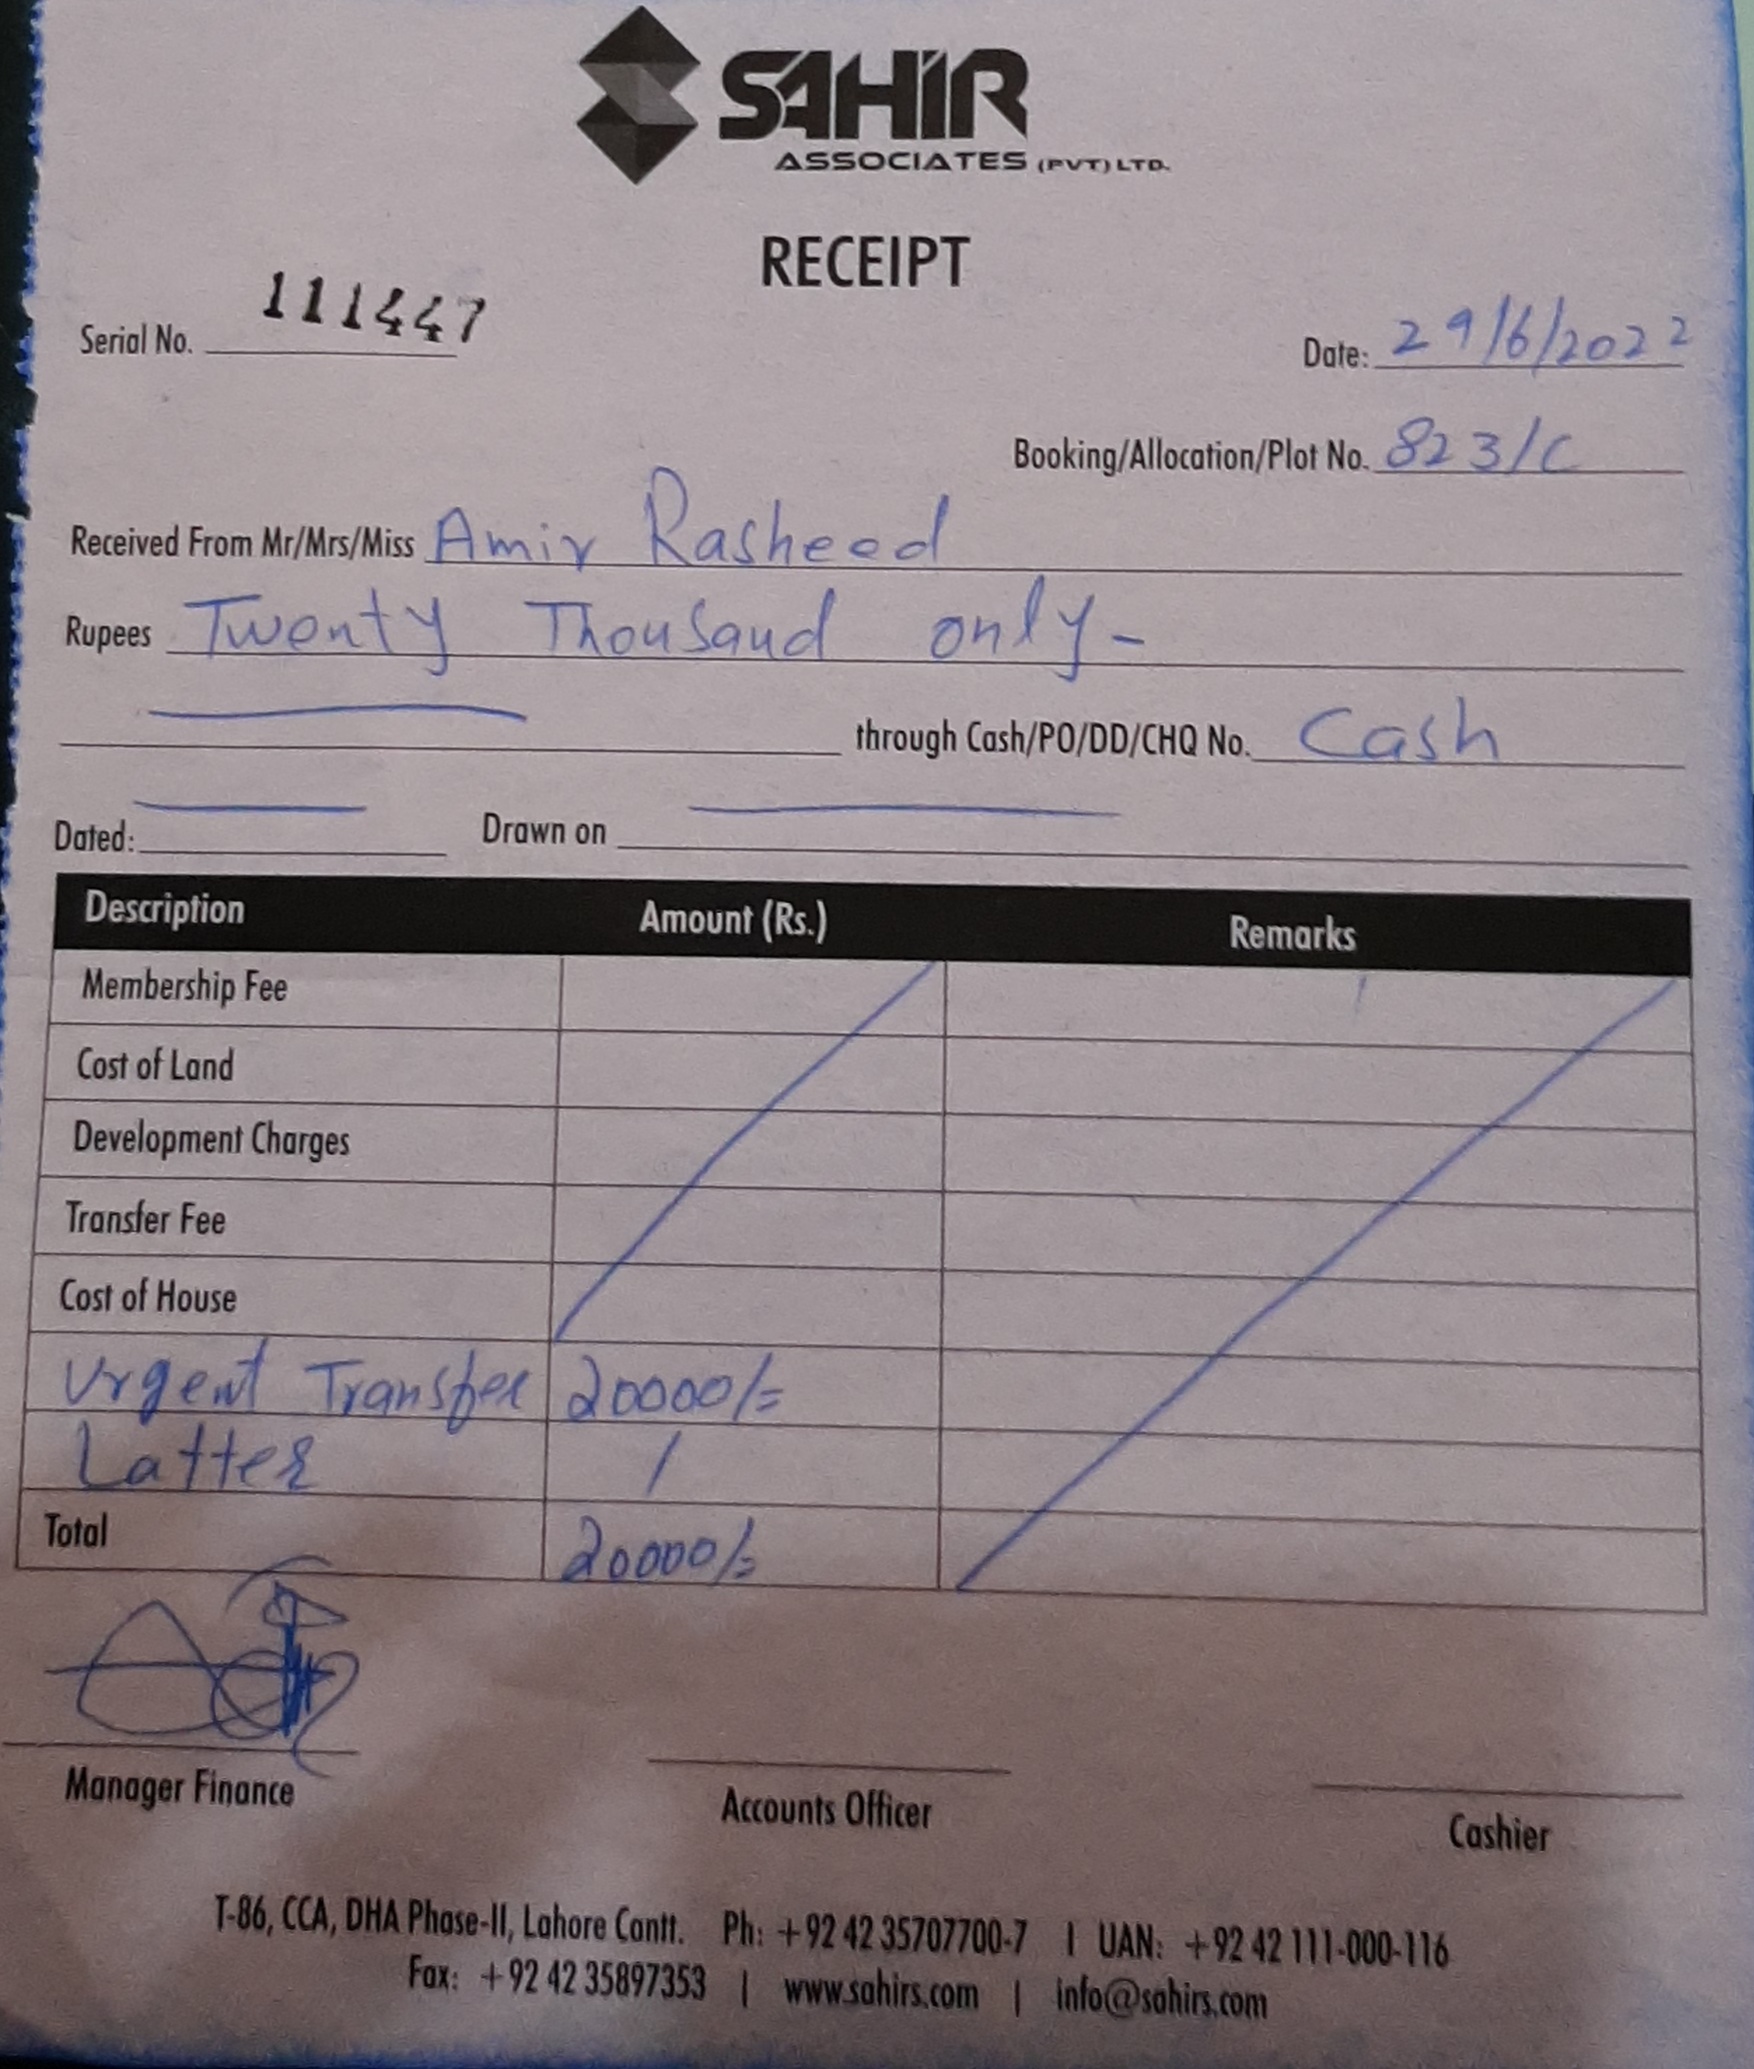 SAHIR
ASSOCIATES (PVT) LTD.
RECEIPT
Serial No. 111447
Date: 29/6/2022
Booking/Allocation/Plot No. 823/C
Received From Mr/Mrs/Miss Amir Rasheed
Rupees Twenty Thousand only-
through Cash/PO/DD/CHQ No. Cash
Dated: Drawn on
Description Amount (Rs.) Remarks
Membership Fee
Cost of Land
Development Charges
Transfer Fee
Cost of House
Urgent Transfer 20000/=
Latter /
Total 20000/=
Manager Finance Accounts Officer Cashier
T-86, CCA, DHA Phase-II, Lahore Cantt. Ph: +92 42 35707700-7 | UAN: +92 42 111-000-116
Fax: +92 42 35897353 | www.sahirs.com | info@sahirs.com